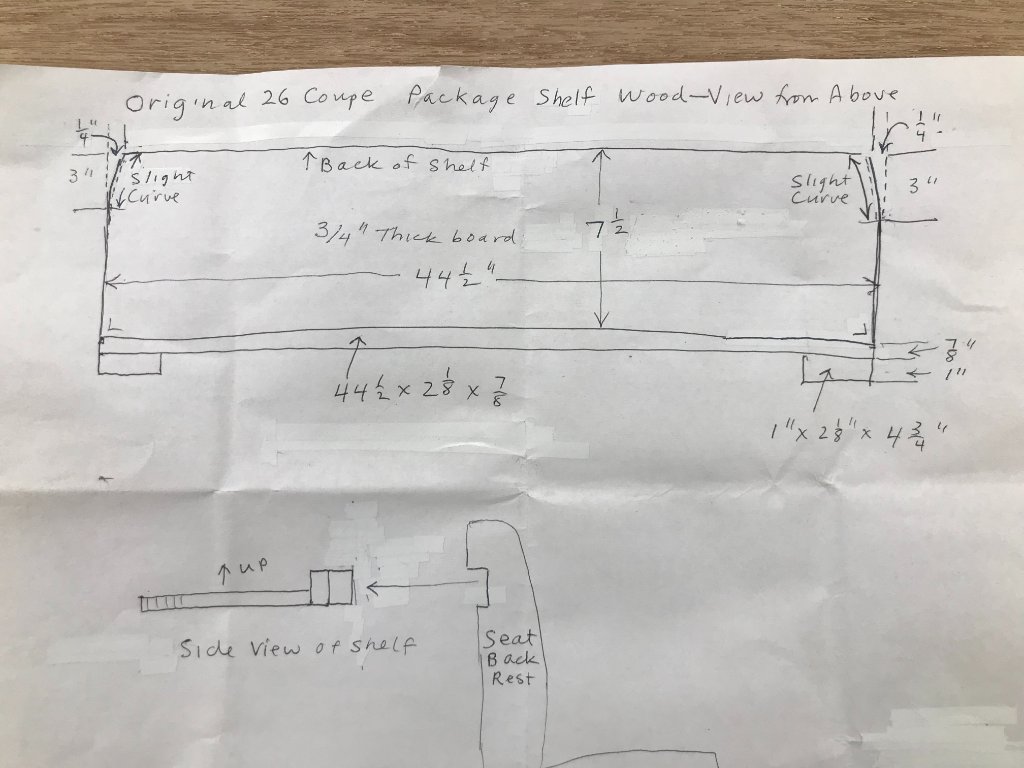 Original 26 Coupe Package Shelf Wood-View from Above
1/4"
1/4"
3"
Slight
Curve
↑ Back of Shelf
Slight
Curve
3"
3/4" Thick board
7 1/2
44 1/2"
7/8"
1"
44 1/2 x 2 1/8 x 7/8
1" x 2 1/8" x 4 3/4"
↑ UP
Side View of Shelf
Seat
Back
Rest